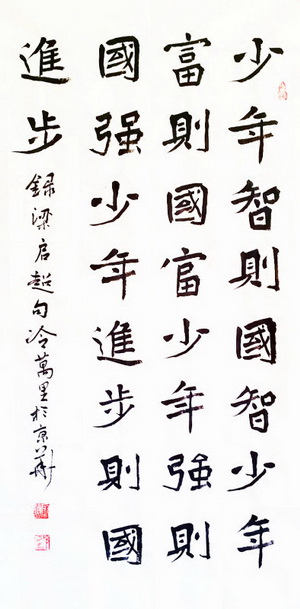 少年智則國智少年
富則國富少年強則
國强少年進步則國
進步
録梁启超句冷萬里於京華